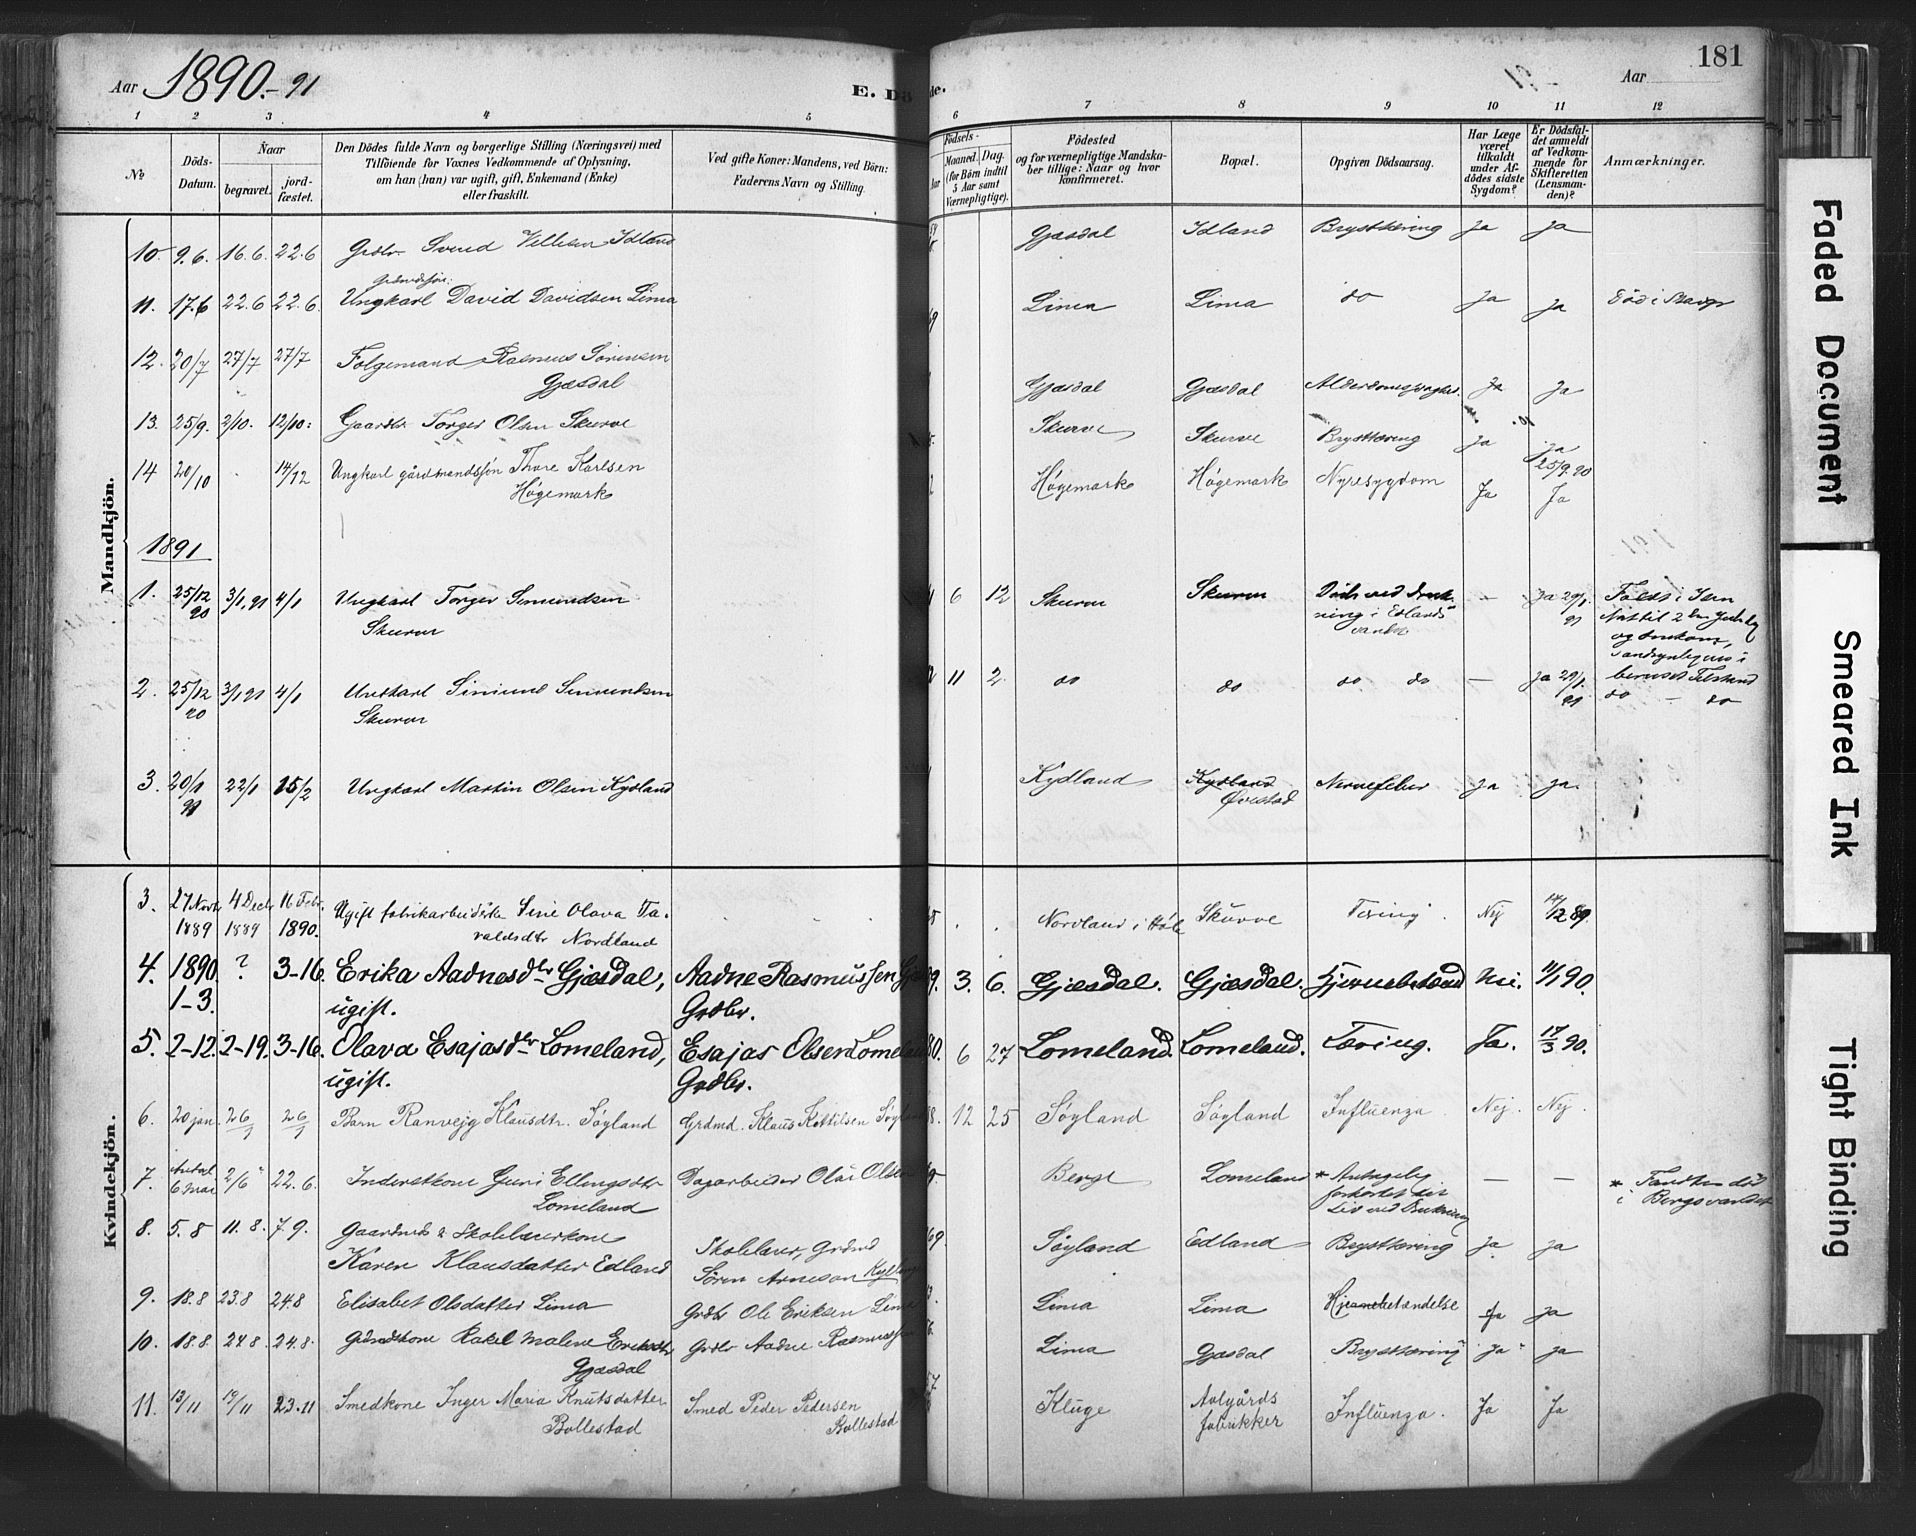 Aar 1890.-91
E. Dö de.
Aar
181
1 2 3 4 5 6 7 8 9 10 11 12
No
Döds-Datum.
Naar
begravet.
jord-fæstet.
Den Dödes fulde Navn og borgerlige Stilling (Næringsvei) med
Tilföiende for Voxnes Vedkommende af Oplysning,
om han (hun) var ugift, gift, Enkemand (Enke)
eller fraskilt.
Ved gifte Koner: Mandens, ved Börn:
Faderens Navn og Stilling.
Födsels-
Aar
Maaned. Dag.
(for Börn indtil
5 Aar samt
Værnepligtige).
Födested
og for værnepligtige Mandska-
ber tillige: Naar og hvor
konfirmeret.
Bopæl.
Opgiven Dödsaarsag.
Har Læge
været
tilkaldt
under Af-
dödes sidste
Sygdom?
Er Dödsfal-
det anmeldt
af Vedkom-
mende for
Skifteretten
(Lensman-
den)?
Anmærkninger.
Mandkjön.
10. 9.6. 16.6. 22.6 Grdbr Svend Villesen Idland Gjæsdal Idland Brysttæring Ja Ja
Gårdmandssøn
11. 17.6 22.6 22.6. Ungkarl David Davidsen Lima Lima Lima do Ja Ja Död i
12. 20/7 27/7 27/7 Følgemand Rasmus Sørensen
Gjæsdal Gjæsdal Gjæsdal Alderdomssvaghed. Ja Ja
13. 25/9. 2/10. 12/10: Gaardbr Torger Olsen Skurve Skurve Skurve Brysttæring Ja Ja
25/9.90
14 20/10 14/12 Ungkarl gårdmandssøn Thore Karlsen
Høgemark Høgemark Høgemark Nyresygdom Ja Ja
1891
1. 25/12 90 3/1.91 4/1 Ungkarl Torger Simundsen
Skurve 6 12 Skurve Skurve Død ved Druk-
ning i Edlands
vandet — Ja 29/1 91 Faldt i Isen
Nat til 2den Juledag
og omkom,
sandsynligvis i
beruset Tilstand
2. 25/12 90 3/1 91 4/1 Ungkarl Simund Simundsen
Skurve 11 2. do do do do — Ja 29/1. 91 do — do
3. 20/1 91 22/1 15/2 Ungkarl Martin Olsen Kydland Kydland Kydland
Øvestad Nervefeber Ja Ja.
Kvindekjön.
3. 27 Novbr 1889 4 Decbr 1889 16 Febr. 1890. Ugift fabrikarbeiderske Sine Olava Ta-
valdsdtr Nordland Nordland i Høle Skurve Tæring. Nej 14/12 89.
4. 1890. 1-3. ? 3-16. Erika Aadnesdtr Gjæsdal,
ugift. Aadne Rasmussen
Grdbr. 9. 3. 6. Gjæsdal. Gjæsdal. Hjernebetænd Nei. 11/1 90.
5. 2-12. 2-19. 3-16. Olava Esajasdtr Lomeland,
ugift. Esajas Olsen Lomeland
Grdbr. 80. 6 27 Lomeland. Lomeland. Tæring. Ja. 17/3 90.
6. 20 jan. 26/1 26/1 Barn Ranvejg Klausdtr. Søyland Grdmd. Klaus Kettilsen Søyland 8. 12 25 Søyland Søyland Influenza. Nej. Nej.
7. Antal 6 mai 2/6 22.6. Inderstkone Guri Ellingsdtr
Lomeland Dagarbeider Olai Olsen Berge Lomeland * Antagelig
forkortet sit
Liv ved Drukning — — * Funden död
i Bergsvandet
8. 5.8 11.8. 7.9. Gaardmds & Skolelærerkone
Karen Klausdatter Edland Skolelærer, Grdmd
Sören Arneson 69. Søyland Edland Brysttæring Ja Ja
9. 18.8 23.8 24.8 Elisabet Olsdatter Lima Grdbr Ole Eriksen Lima 3. Lima Lima Hjernebetændelse Ja Ja
10. 18.8 24.8. 24.8. Gårdmdkone Rakel Malene Eriksdtr
Gjæsdal Grdbr Aadne Rasmussen 6. Lima Gjæsdal Brysttæring Ja Ja
11. 13/11 19/11 23.11 Smedkone Inger Maria Knutsdatter
Bollestad Smed Peder Pedersen
Bollestad Kluge Aalgårds
fabrikker Influenza. Ja Ja
Faded Document
Smeared Ink
Tight Binding